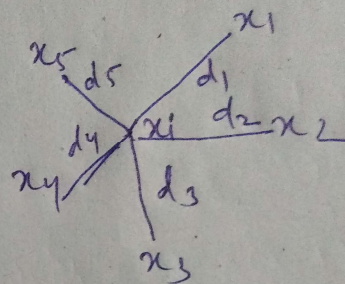 x1
x5 d5
d1
d2 x2
d4 xi
x4 d3
x3